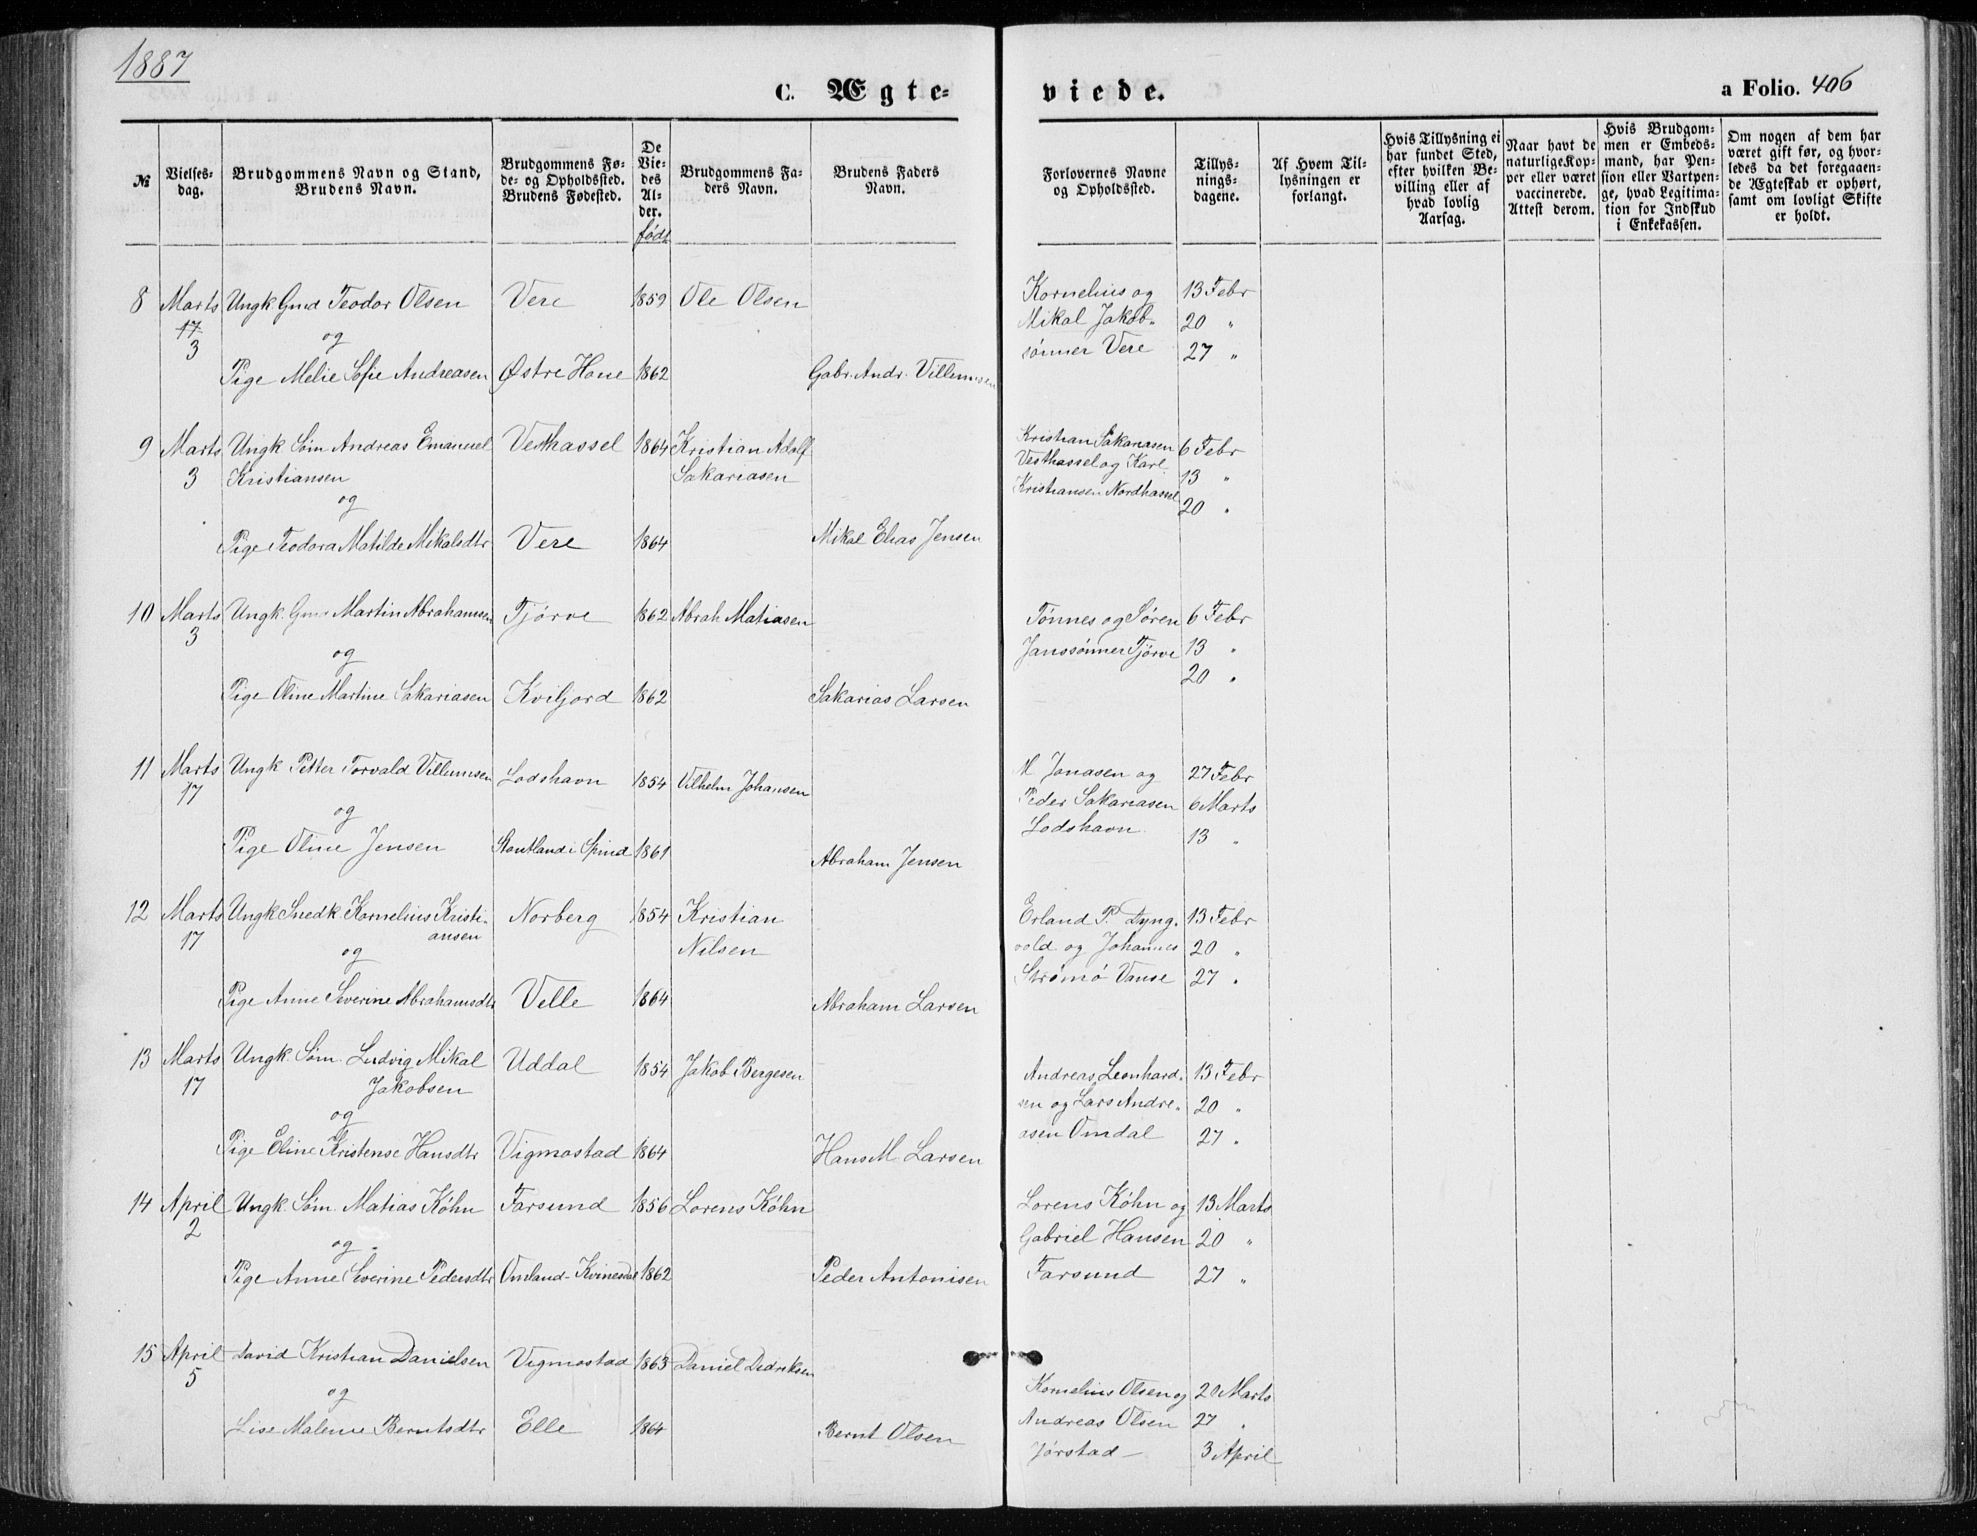 1887
C. Ægte-
viede.
a Folio. 406
№
Vielses-
dag.
Brudgommens Navn og Stand,
Brudens Navn.
Brudgommens Fø-
de- og Opholdssted.
Brudens Fødested.
De
Vie-
des
Al-
der.
født
Brudgommens Fa-
ders Navn.
Brudens Faders
Navn.
Forlovernes Navne
og Opholdssted.
Tillys-
nings-
dagene.
Af Hvem Til-
lysningen er
forlangt.
Hvis Tillysning ei
har fundet Sted,
efter hvilken Be-
villing eller af
hvad lovlig
Aarsag.
Naar havt de
naturlige Kop-
per eller været
vaccinerede.
Attest derom.
Hvis Brudgom-
men er Embeds-
mand, har Pen-
sion eller Vartpen-
ge, hvad Legitima-
tion for Indskud
i Enkekassen.
Om nogen af dem har
været gift før, og hvor-
ledes da det foregaaen-
de Ægteskab er ophørt,
samt om lovligt Skifte
er holdt.
8 Marts Ungk Gmd Teodor Olsen Vere 1859 Ole Olsen Kornelius og 13 Febr
17 og Mikal Jakob- 20 "
3 sønner Vere 27 "
Pige Melie Sofie Andreasen Østre Hane 1862 Gabr. Andr. Villumsen
9 Marts Ungk Søm Andreas Emanuel Vesthassel 1864 Kristian Adolf Kristian Sakariasen 6 Febr
3 Kristiansen Sakariasen Vesthassel og Karl 13 "
og Kristiansen Nordhassel 20 "
Pige Teodora Matilde Mikalsdtr Vere 1864 Mikal Elias Jensen
10 Marts Ungk. Gmd Martin Abrahamsen Tjørve 1862 Abrah Matiasen Tønnes og Søren 6 Febr
3 og Janssønner Tjørve 13 "
20 "
Pige Oline Martine Sakariasen Kviljord 1862 Sakarias Larsen
11 Marts Ungk Petter Torvald Villumsen Lodshavn 1854 Vilhelm Johansen M Jonasen og 27 Febr
17 og Peder Sakariasen 6 Marts
Lodshavn 13 "
Pige Oline Jensen Stautland i Spind 1861 Abraham Jensen
12 Marts Ungk Snedk. Kornelius Kristi- Norberg 1854 Kristian Erland P. Lyng- 13 Febr
17 ansen Nilsen vold og Johannes 20 "
og Strømø Vanse 27 "
Pige Anne Severine Abrahamsdtr Velle 1864 Abraham Larsen
13 Marts Ungk Søm. Ludvig Mikal Uddal 1854 Jakob Bergesen Andreas Leonhard- 13 Febr
17 Jakobsen sen og Lars Andre- 20 "
og asen Omdal 27 "
Pige Eline Kristense Hansdtr Vigmostad 1864 Hans M. Larsen
14 April Ungk. Søm. Matias Køhn Farsund 1856 Lorens Køhn Lorens Køhn og 13 Marts
2 og Gabriel Hansen 20 "
Pige Anne Severine Pedersdtr Omland-Kvinesdal 1862 Peder Antonisen Farsund 27 "
15 April David Kristian Danielsen Vigmostad 1863 Daniel Didriksen
5 og Kornelius Olsen og 20 Marts
Lise Malene Berntsdtr Elle 1864 Bernt Olsen Andreas Olsen 27 "
Jørstad 3 April